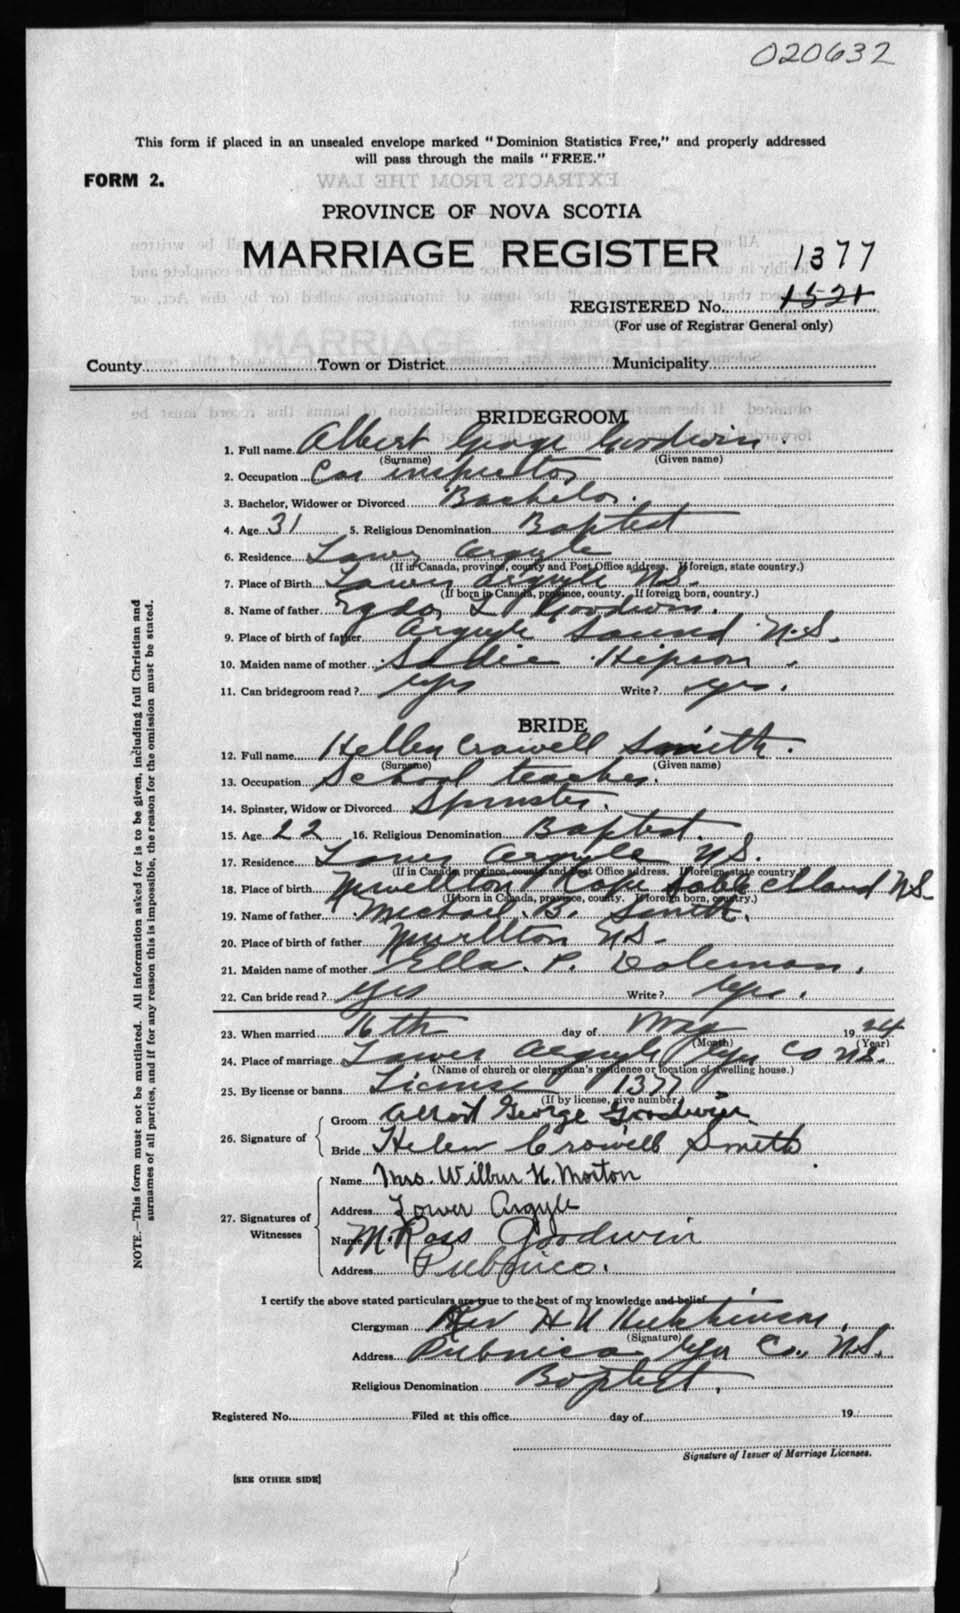 020632
This form if placed in an unsealed envelope marked "Dominion Statistics Free," and properly addressed
will pass through the mails "FREE."
FORM 2.
PROVINCE OF NOVA SCOTIA
MARRIAGE REGISTER 1377
REGISTERED No. 1521
(For use of Registrar General only)
County Town or District Municipality
BRIDEGROOM
1. Full name Albert George Goodwin
(Surname) (Given name)
2. Occupation Car inspector
3. Bachelor, Widower or Divorced Bachelor.
4. Age 31 5. Religious Denomination Baptist
6. Residence Lower Argyle
(If in Canada, province, county and Post Office address. If foreign, state country.)
7. Place of Birth Lower Argyle N.S.
(If born in Canada, province, county. If foreign born, country.)
8. Name of father L Goodwin.
9. Place of birth of father Argyle Sound N.S.
10. Maiden name of mother Sadie Hipson.
11. Can bridegroom read? yes Write? yes.
BRIDE
12. Full name Hellen Crowell Smith.
(Surname) (Given name)
13. Occupation School teacher.
14. Spinster, Widow or Divorced Spinster.
15. Age 22 16. Religious Denomination Baptist.
17. Residence Lower Argyle N.S.
(If in Canada, province, county and Post Office address. If foreign state country)
18. Place of birth Cape Sable Island N.S.
(If born in Canada, province, county. If foreign born, country.)
19. Name of father Michael. B. Smith.
20. Place of birth of father N.S.
21. Maiden name of mother Ella. P. Coleman.
22. Can bride read? yes Write? yes.
23. When married 16th day of May 1924
(Month) (Year)
24. Place of marriage Lower Argyle Yar Co N.S.
(Name of church or clergyman's residence or location of dwelling house.)
25. By license or banns License 1377
(If by license, give number)
26. Signature of
Groom Albert George Goodwin
Bride Helen Crowell Smith
27. Signatures of Witnesses
Name Mrs. Wilbur H. Morton
Address Lower Argyle
Name M. Ross Goodwin
Address Pubnico.
I certify the above stated particulars are true to the best of my knowledge and belief.
Clergyman Rev H U Hutchinson.
(Signature)
Address Pubnico Yar Co., N.S.
Religious Denomination Baptist.
Registered No. Filed at this office day of 19
Signature of Issuer of Marriage Licenses.
[SEE OTHER SIDE]
NOTE.—This form must not be mutilated. All information asked for is to be given, including full Christian and
surnames of all parties, and if for any reason this is impossible, the reason for the omission must be stated.